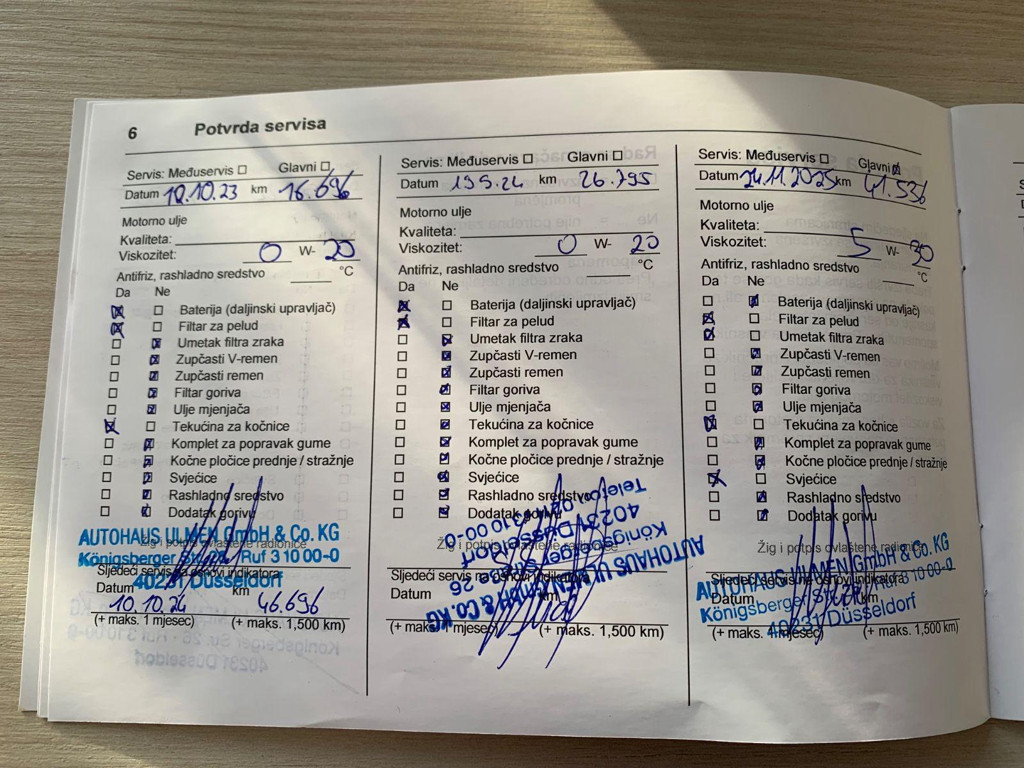 6 Potvrda servisa
Servis: Međuservis □ Glavni □
Datum 10.10.23 km 16.696
Motorno ulje
Kvaliteta:
Viskozitet: 0 W- 20
Antifriz, rashladno sredstvo °C
Da Ne
Baterija (daljinski upravljač)
Filtar za pelud
Umetak filtra zraka
Zupčasti V-remen
Zupčasti remen
Filtar goriva
Ulje mjenjača
Tekućina za kočnice
Komplet za popravak gume
Kočne pločice prednje / stražnje
Svjećice
Rashladno sredstvo
Dodatak gorivu
AUTOHAUS ULMEN GmbH & Co. KG
Žig i potpis ovlaštene radionice
Königsberger Ruf 3 10 00-0
Sljedeći servis na osnovi indikatora
40231 Düsseldorf
Datum km
10.10.24 46.696
(+ maks. 1 mjesec) (+ maks. 1,500 km)
Servis: Međuservis □ Glavni □
Datum 19 9.24 km 26.795
Motorno ulje
Kvaliteta:
Viskozitet: 0 W- 20
Antifriz, rashladno sredstvo °C
Da Ne
Baterija (daljinski upravljač)
Filtar za pelud
Umetak filtra zraka
Zupčasti V-remen
Zupčasti remen
Filtar goriva
Ulje mjenjača
Tekućina za kočnice
Komplet za popravak gume
Kočne pločice prednje / stražnje
Svjećice
Rashladno sredstvo
Dodatak gorivu
Žig i potpis ovlaštene radionice
AUTOHAUS ULMEN GmbH & Co. KG
Königsberger 26
40231 Düsseldorf
Telefon 0211/310 00-0
Sljedeći servis na osnovi indikatora
Datum km
(+ maks. 1 mjesec) (+ maks. 1,500 km)
Servis: Međuservis □ Glavni
Datum 24.11.2025 km 41.536
Motorno ulje
Kvaliteta:
Viskozitet: 5 W- 30
Antifriz, rashladno sredstvo °C
Da Ne
Baterija (daljinski upravljač)
Filtar za pelud
Umetak filtra zraka
Zupčasti V-remen
Zupčasti remen
Filtar goriva
Ulje mjenjača
Tekućina za kočnice
Komplet za popravak gume
Kočne pločice prednje / stražnje
Svjećice
Rashladno sredstvo
Dodatak gorivu
Žig i potpis ovlaštene radionice
AUTOHAUS ULMEN GmbH & Co. KG
Sljedeći servis na osnovi indikatora
Königsberger 3 10 00-0
Datum
40231 Düsseldorf
(+ maks. 1 mjesec) (+ maks. 1,500 km)